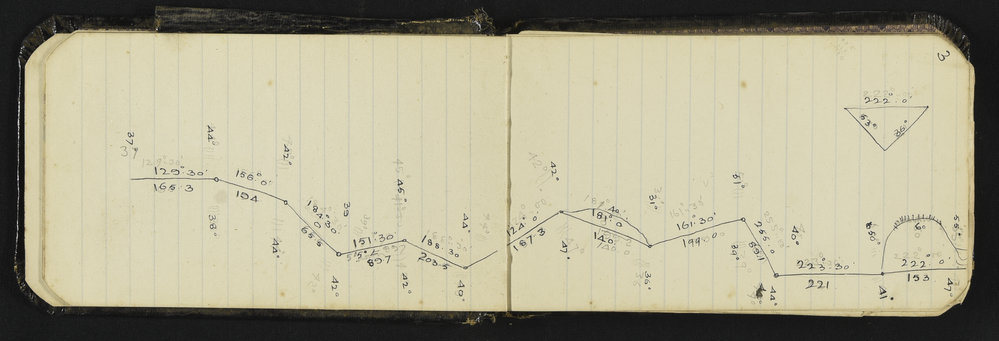 3
37°
37
129° 30'
165.3
44°
38°
156° 0'
194
42°
44°
184° 30'
65.5
39
42°
151° 30'
897
45°
42°
188° 30
203.5
44°
40°
124° 0'
187.3
42°
47°
181° 40'
140
31°
36°
161° 30'
199
31°
39°
255° 0
89.1
40°
44°
223° 30'
221
50°
41°
6°
222° 0'
153
47°
222° 0'
53°
36°